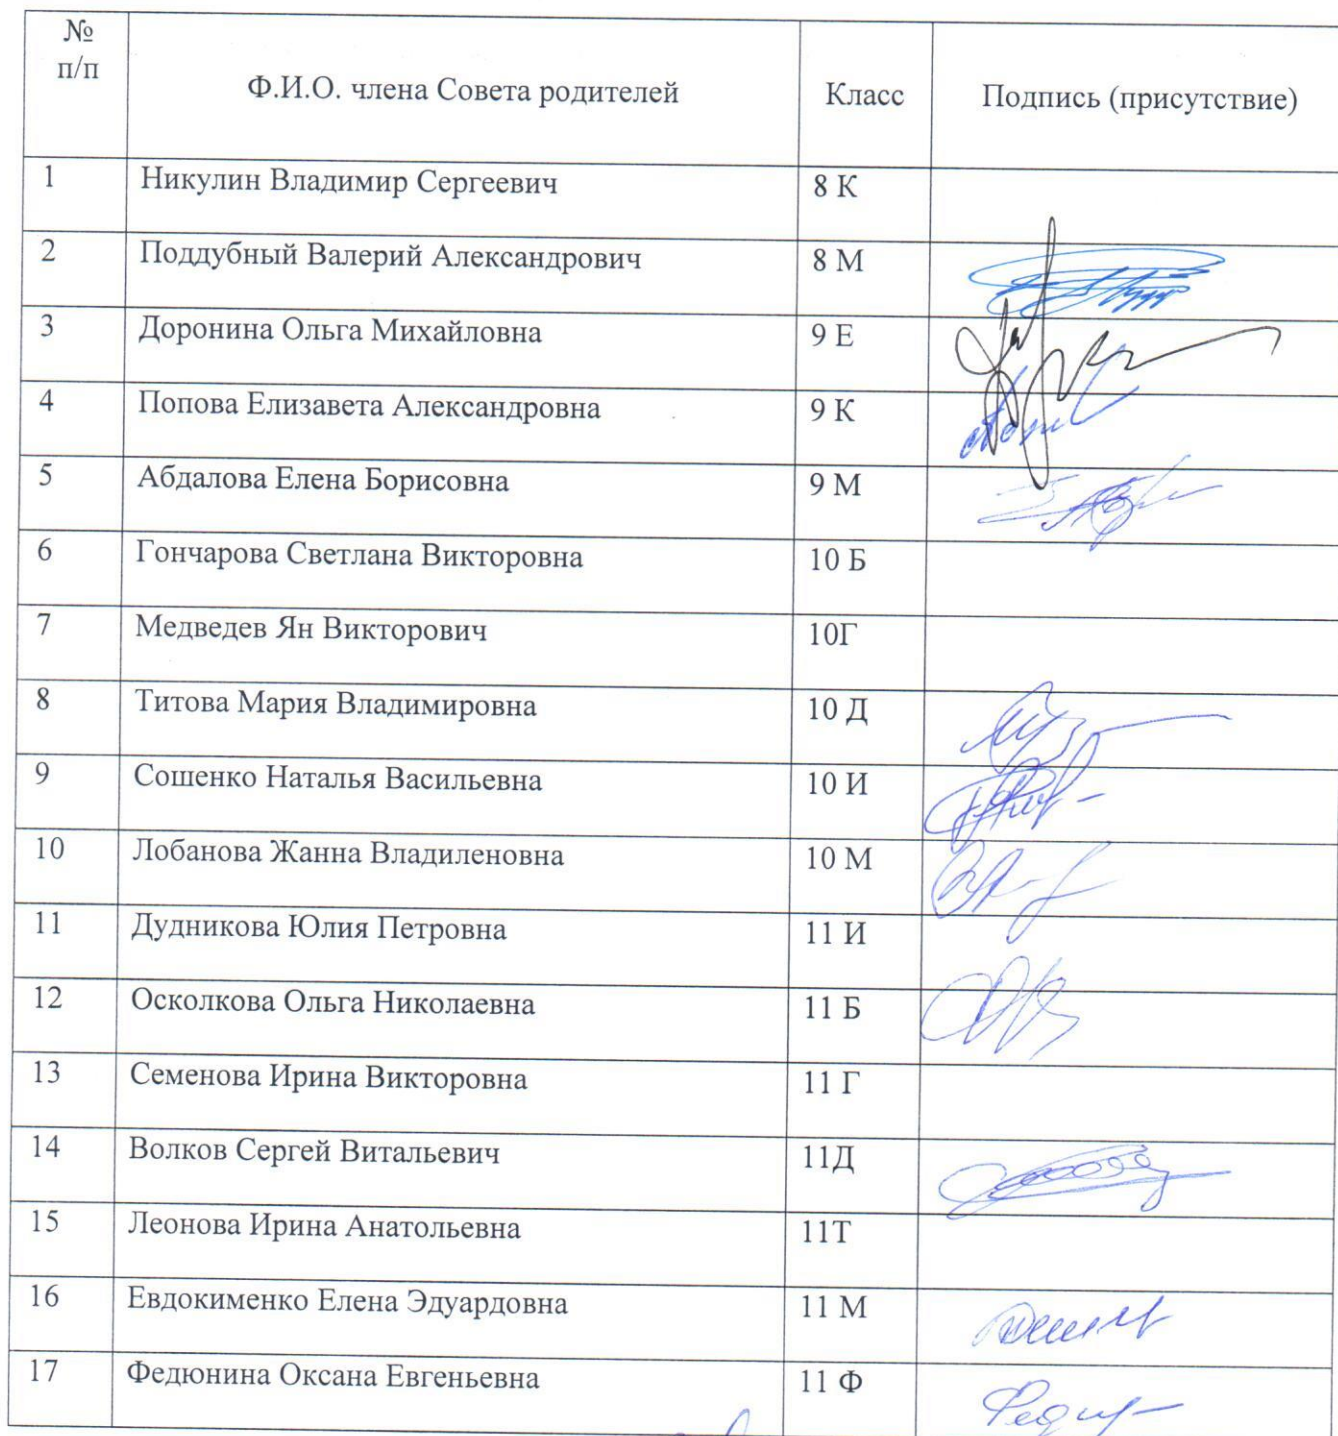 № п/п Ф.И.О. члена Совета родителей Класс Подпись (присутствие)
1 Никулин Владимир Сергеевич 8 К
2 Поддубный Валерий Александрович 8 М
3 Доронина Ольга Михайловна 9 Е
4 Попова Елизавета Александровна 9 К
5 Абдалова Елена Борисовна 9 М
6 Гончарова Светлана Викторовна 10 Б
7 Медведев Ян Викторович 10Г
8 Титова Мария Владимировна 10 Д
9 Сошенко Наталья Васильевна 10 И
10 Лобанова Жанна Владиленовна 10 М
11 Дудникова Юлия Петровна 11 И
12 Осколкова Ольга Николаевна 11 Б
13 Семенова Ирина Викторовна 11 Г
14 Волков Сергей Витальевич 11Д
15 Леонова Ирина Анатольевна 11Т
16 Евдокименко Елена Эдуардовна 11 М
17 Федюнина Оксана Евгеньевна 11 Ф